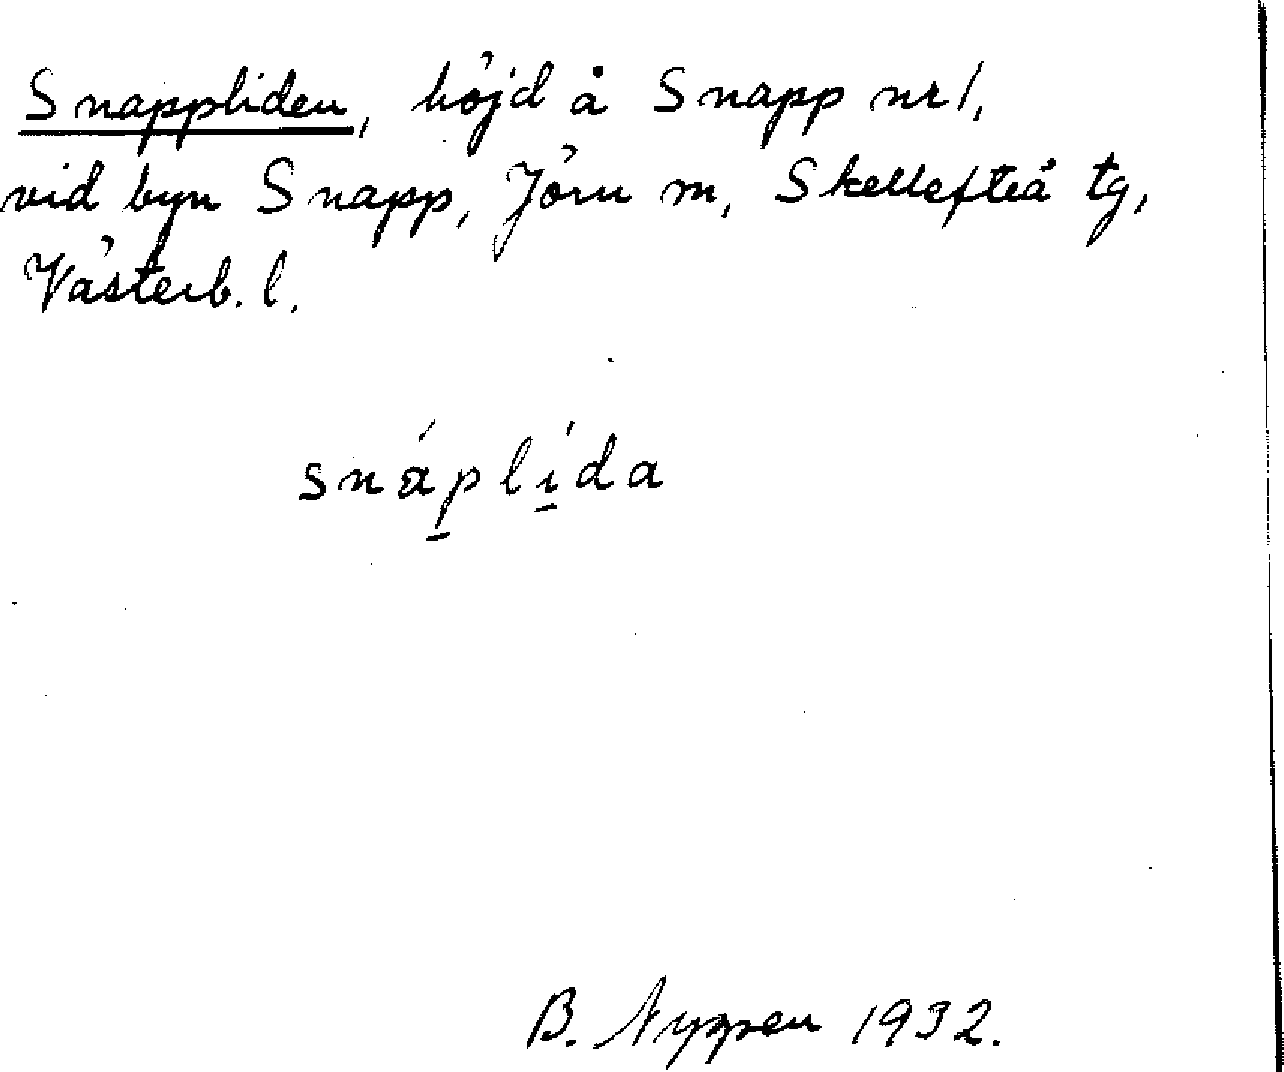 Snappliden, höjd å Snapp nr 1,
vid byn Snapp, Jörn m, Skellefteå tg,
Västerb. l.
snáp̱lí̱da
B. Nyppen 1932.